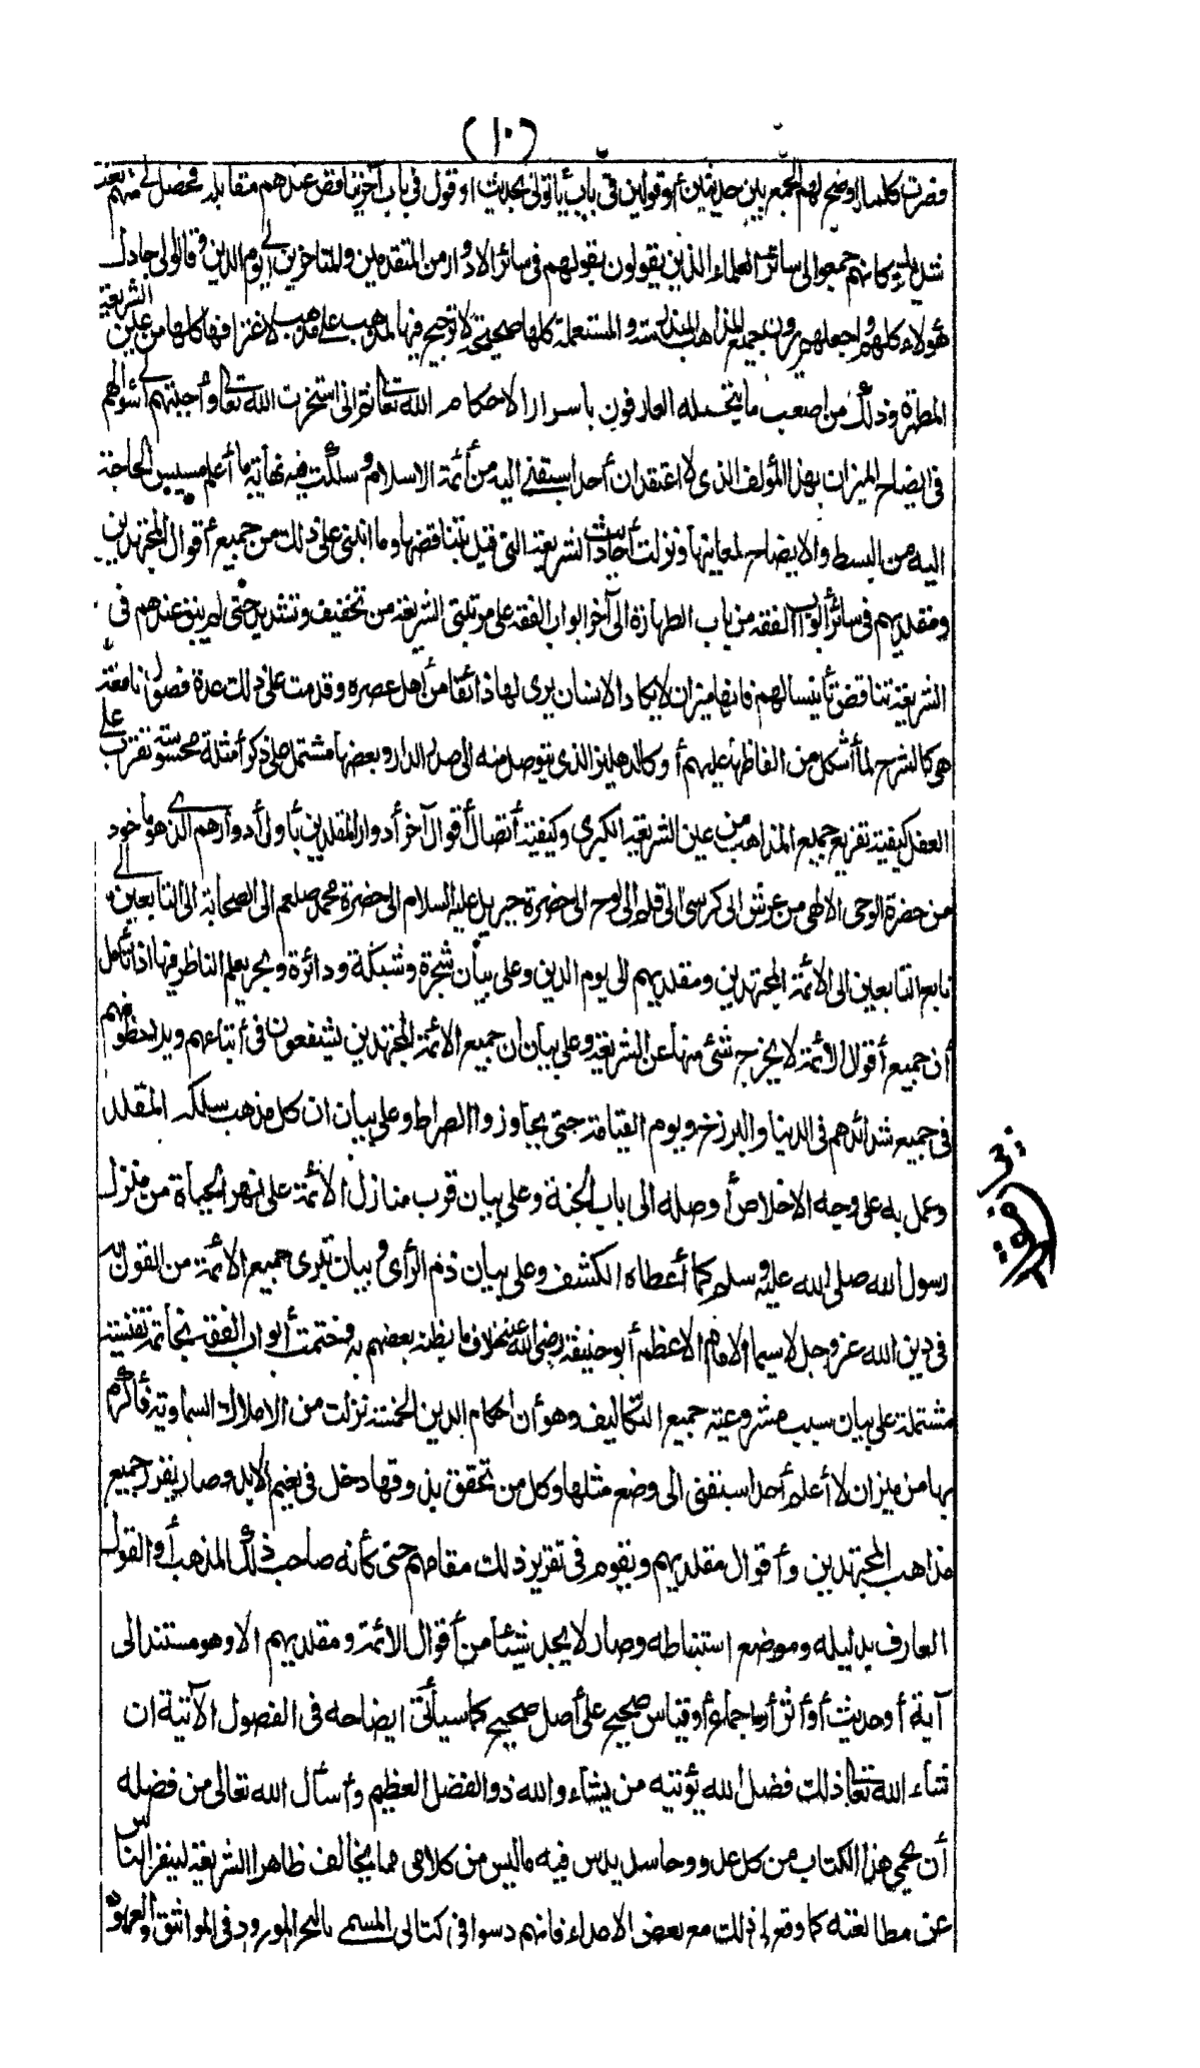 (١٠)
فصرت كلما أوضح لهم الجمع بين حديثين أو قولين في باب يأتوني بحديث أو قول في باب آخر يناقض عندهم مقابله فحصل لي منهم تعب
شديد كأنهم جمعوا لي سائر العلماء الذين يقولون بقولهم في سائر الأدوار من المتقدمين والمتأخرين إلى يوم الدين وقالوا لي جادل
هؤلاء كلهم واجعلهم يرون جميع المذاهب المندرسة والمستعملة كلها صحيحة لا ترجيح فيها لمذهب على مذهب لاغترافها كلها من عين الشريعة
المطهرة وذلك من أصعب ما يتحمله العارفون باسرار الاحكام ثم إني استخرت الله تعالى وأجبتهم إلى سؤالهم
في ايضاح الميزان بهذا المؤلف الذي لا اعتقد ان أحدا سبقني اليه من أئمة الاسلام وسلكت فيه نهاية ما أعلم مسيس الحاجة
اليه من البسط والايضاح لمعانيها ونزلت أحاديث الشريعة التي قيل بتناقضها وما انبنى على ذلك من جميع أقوال المجتهدين
ومقلديهم في سائر أبواب الفقه من باب الطهارة الى آخر ابواب الفقه على مرتبتي الشريعة من تخفيف وتشديد حتى لم يبق عندهم في
الشريعة تناقض تأنيسا لهم فانها ميزان لا يكاد الانسان يرى لها ذائقا من أهل عصره وقدمت على ذلك عدة فصول نافعة
هي كالشرح لما أشكل من الفاظها عليهم أو كالدهليز الذي يتوصل منه الى صدر الدار وبعضها مشتمل على ذكر أمثلة محسوسة تقرب على
العقل كيفية تفريع جميع المذاهب من عين الشريعة الكبرى وكيفية أتصال أقوال آخر أدوار المقلدين بأول أدوارهم الذي هو مأخوذ
من حضرة الوحي الالهي من عرش الى كرسي الى قلم الى لوح الى حضرة جبريل عليه السلام الى حضرة محمد صلعم الى الصحابة الى التابعين الى
تابع التابعين الى الائمة المجتهدين ومقلديهم الى يوم الدين وعلى بيان شجرة وشبكة ودائرة وبحر يعلم الناظر فيها اذا تأمل
أن جميع أقوال الائمة لا يخرج شئ منها عن الشريعة وعلى بيان ان جميع الائمة المجتهدين يشفعون في أتباعهم ويلاحظونهم
في جميع شدائدهم في الدنيا والبرزخ ويوم القيامة حتى يجاوزوا الصراط وعلى بيان ان كل مذهب سلكه المقلد
وعمل به على وجه الاخلاص أوصله الى باب الجنة وعلى بيان قرب منازل الائمة على نهر الحياة من منزل
رسول الله صلى الله عليه وسلم كما أعطاه الكشف وعلى بيان ذم الرأى وبيان تبرى جميع الائمة من القول به
في دين الله عز وجل لاسيما الامام الاعظم أبو حنيفة رضي الله عنه خلاف ما يظنه بعضهم به وختمت أبواب الفقه بخاتمة نفيسة
مشتملة على بيان سبب مشروعية جميع التكاليف وهو أن احكام الدين الخمسة نزلت من الاملاك السماوية فأكرم
بها من ميزان لا أعلم أحدا سبقني الى وضع مثلها وكل من تحقق بذوقها دخل في نعيم الابد وصار يقرر جميع
مذاهب المجتهدين وأقوال مقلديهم ويقوم في تقرير ذلك مقامهم حتى كأنه صاحب ذلك المذهب أو القول
العارف بدليله وموضع استنباطه وصار لا يجد شيئا من أقوال الائمة ومقلديهم الا وهو مستند الى
آية أو حديث أو أثر أو اجماع أو قياس صحيح على أصل صحيح كما سيأتي ايضاحه في الفصول الآتية ان
شاء الله تعالى ذلك فضل الله يؤتيه من يشاء والله ذو الفضل العظيم وأسأل الله تعالى من فضله
أن يحمي هذا الكتاب من كل عدو وحاسد يدس فيه ما ليس من كلامي مما يخالف ظاهر الشريعة لينفر الناس
عن مطالعته كما وقع لي ذلك مع بعض الاعداء فانهم دسوا في كتابي المسمى بالبحر المورود في المواثيق والعهود